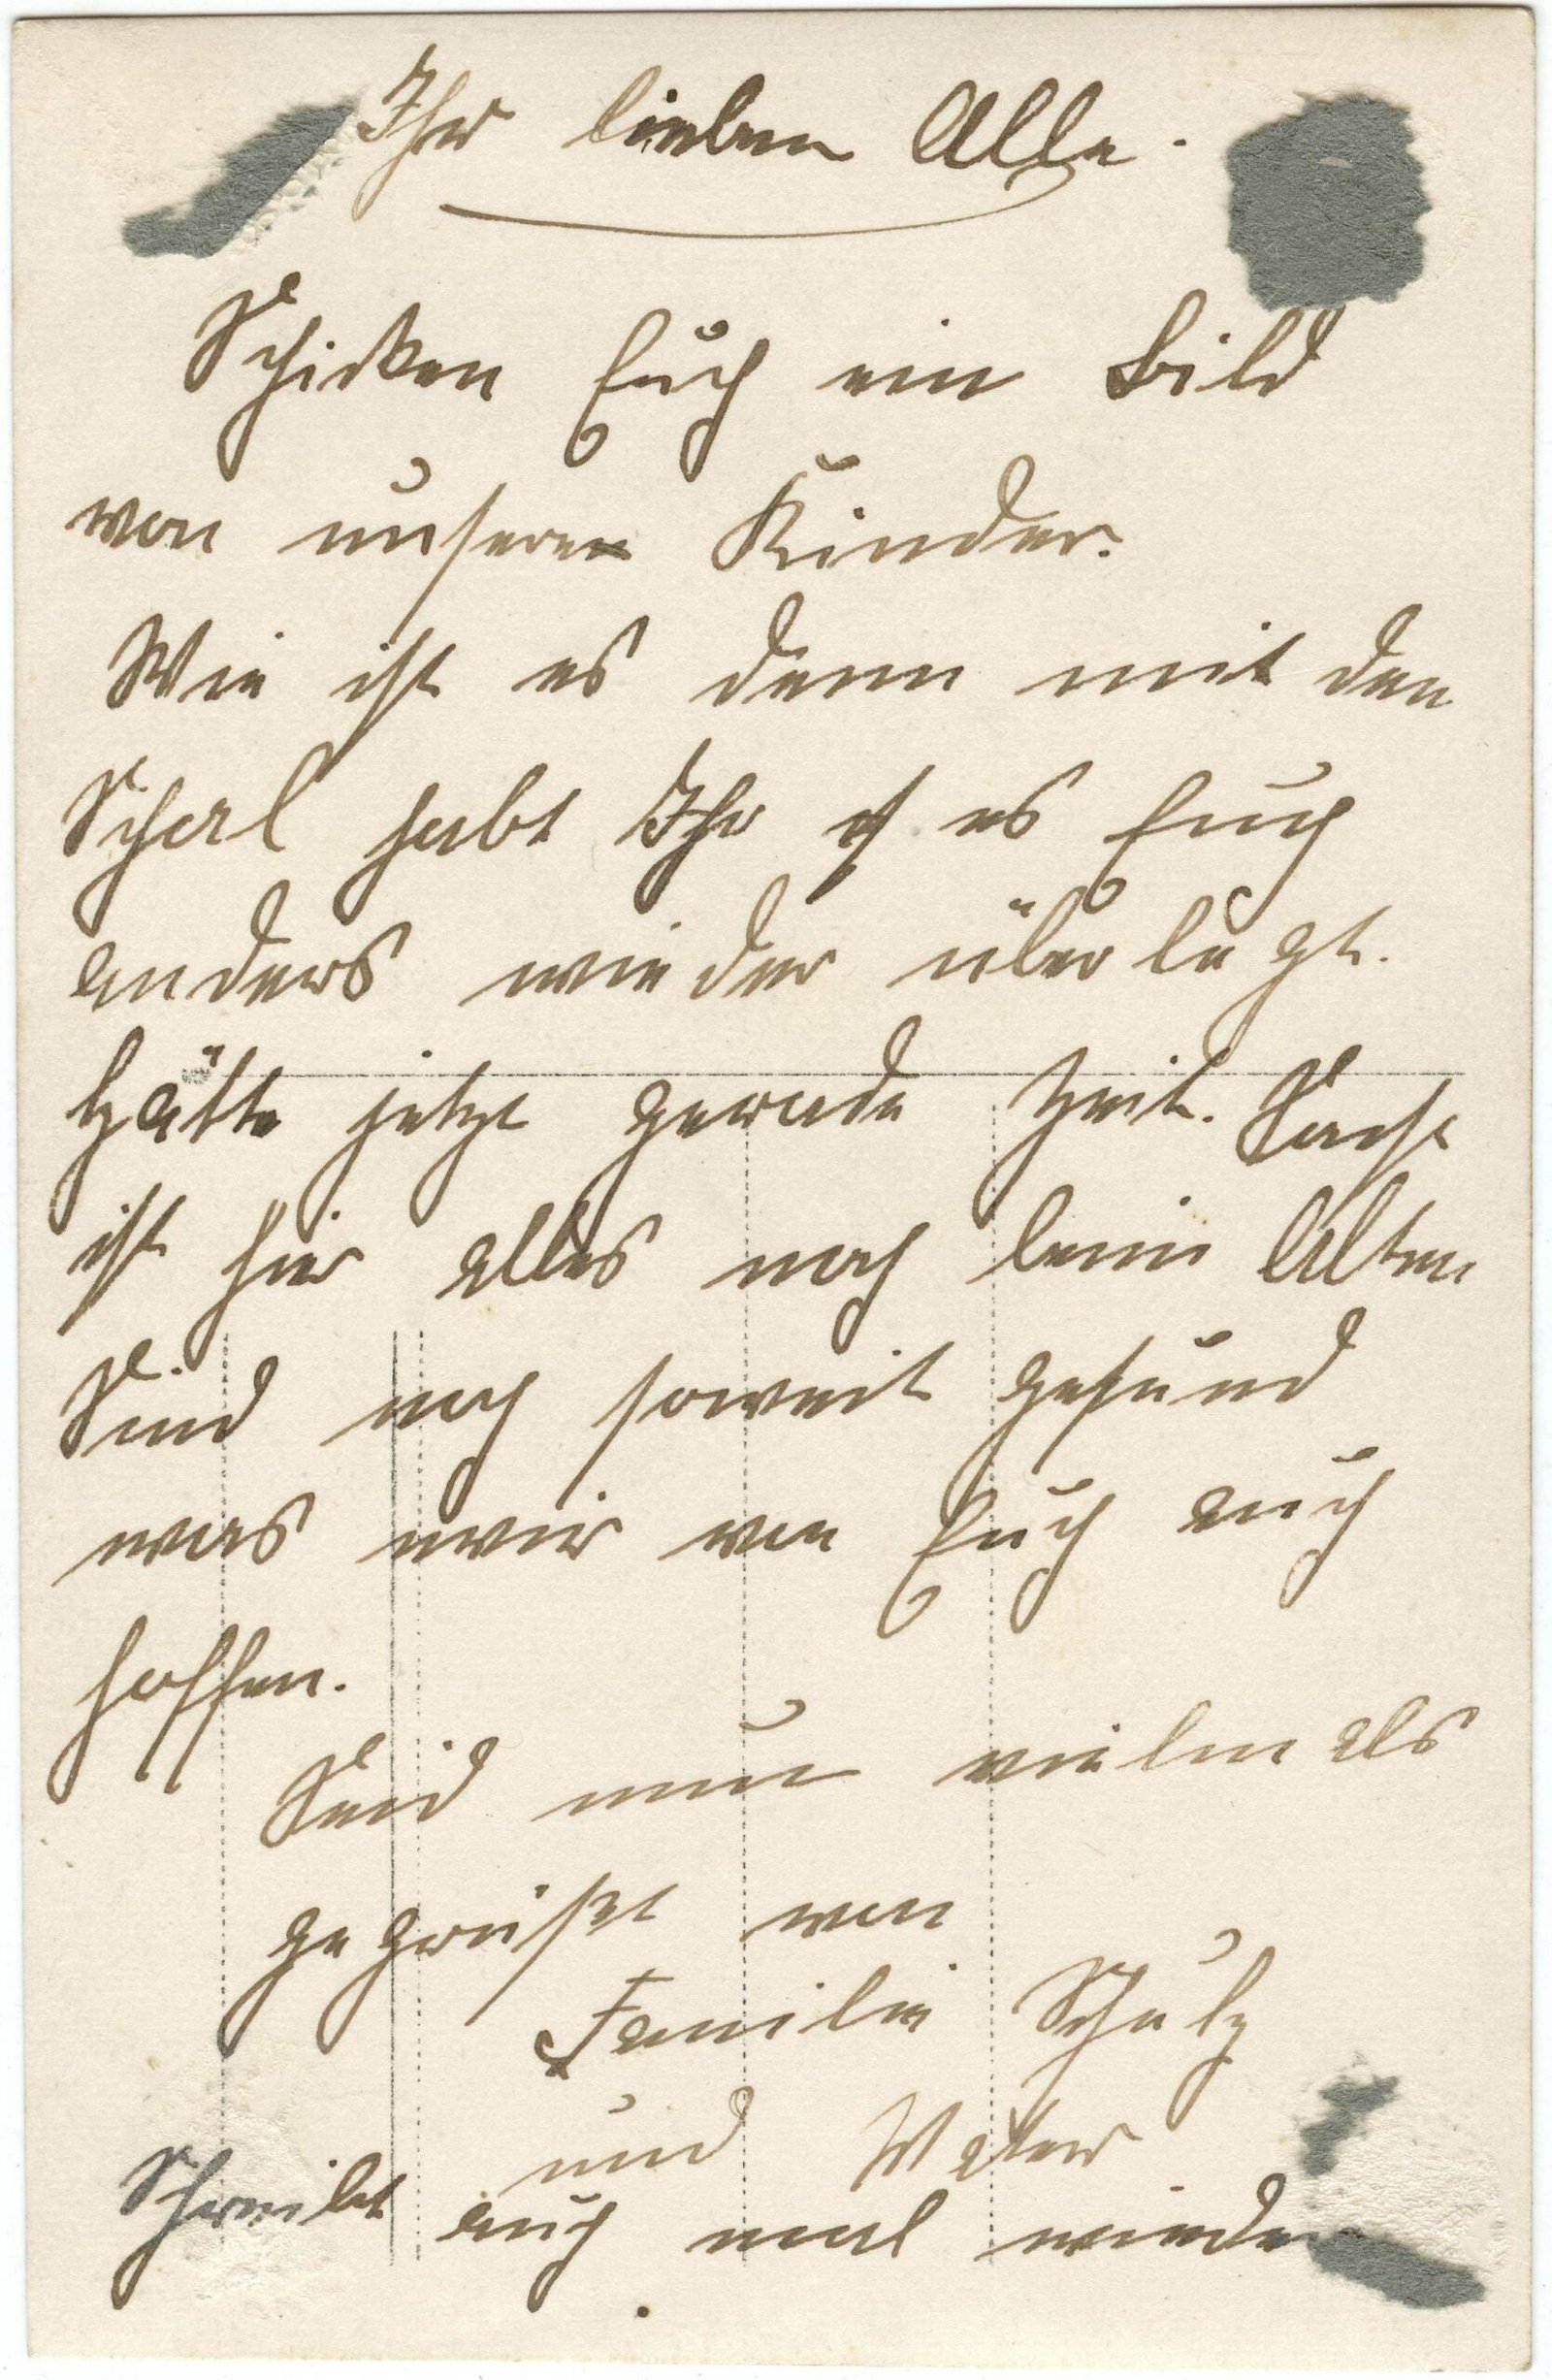 Ihr lieben Alle.
Schicken Euch ein Bild
von unsere Kinder.
Wie ist es denn mit den
Schal habt Ihr es Euch
anders wieder überlegt.
Hätte jetzt gerade Zeit. Sonst
ist hier alles noch beim Alten
Sind noch soweit gesund
was wir von Euch auch
hoffen.
Seid nun vielmals
gegrüßt von
Familie Schulz
und Vater
Schreibt auch mal wieder